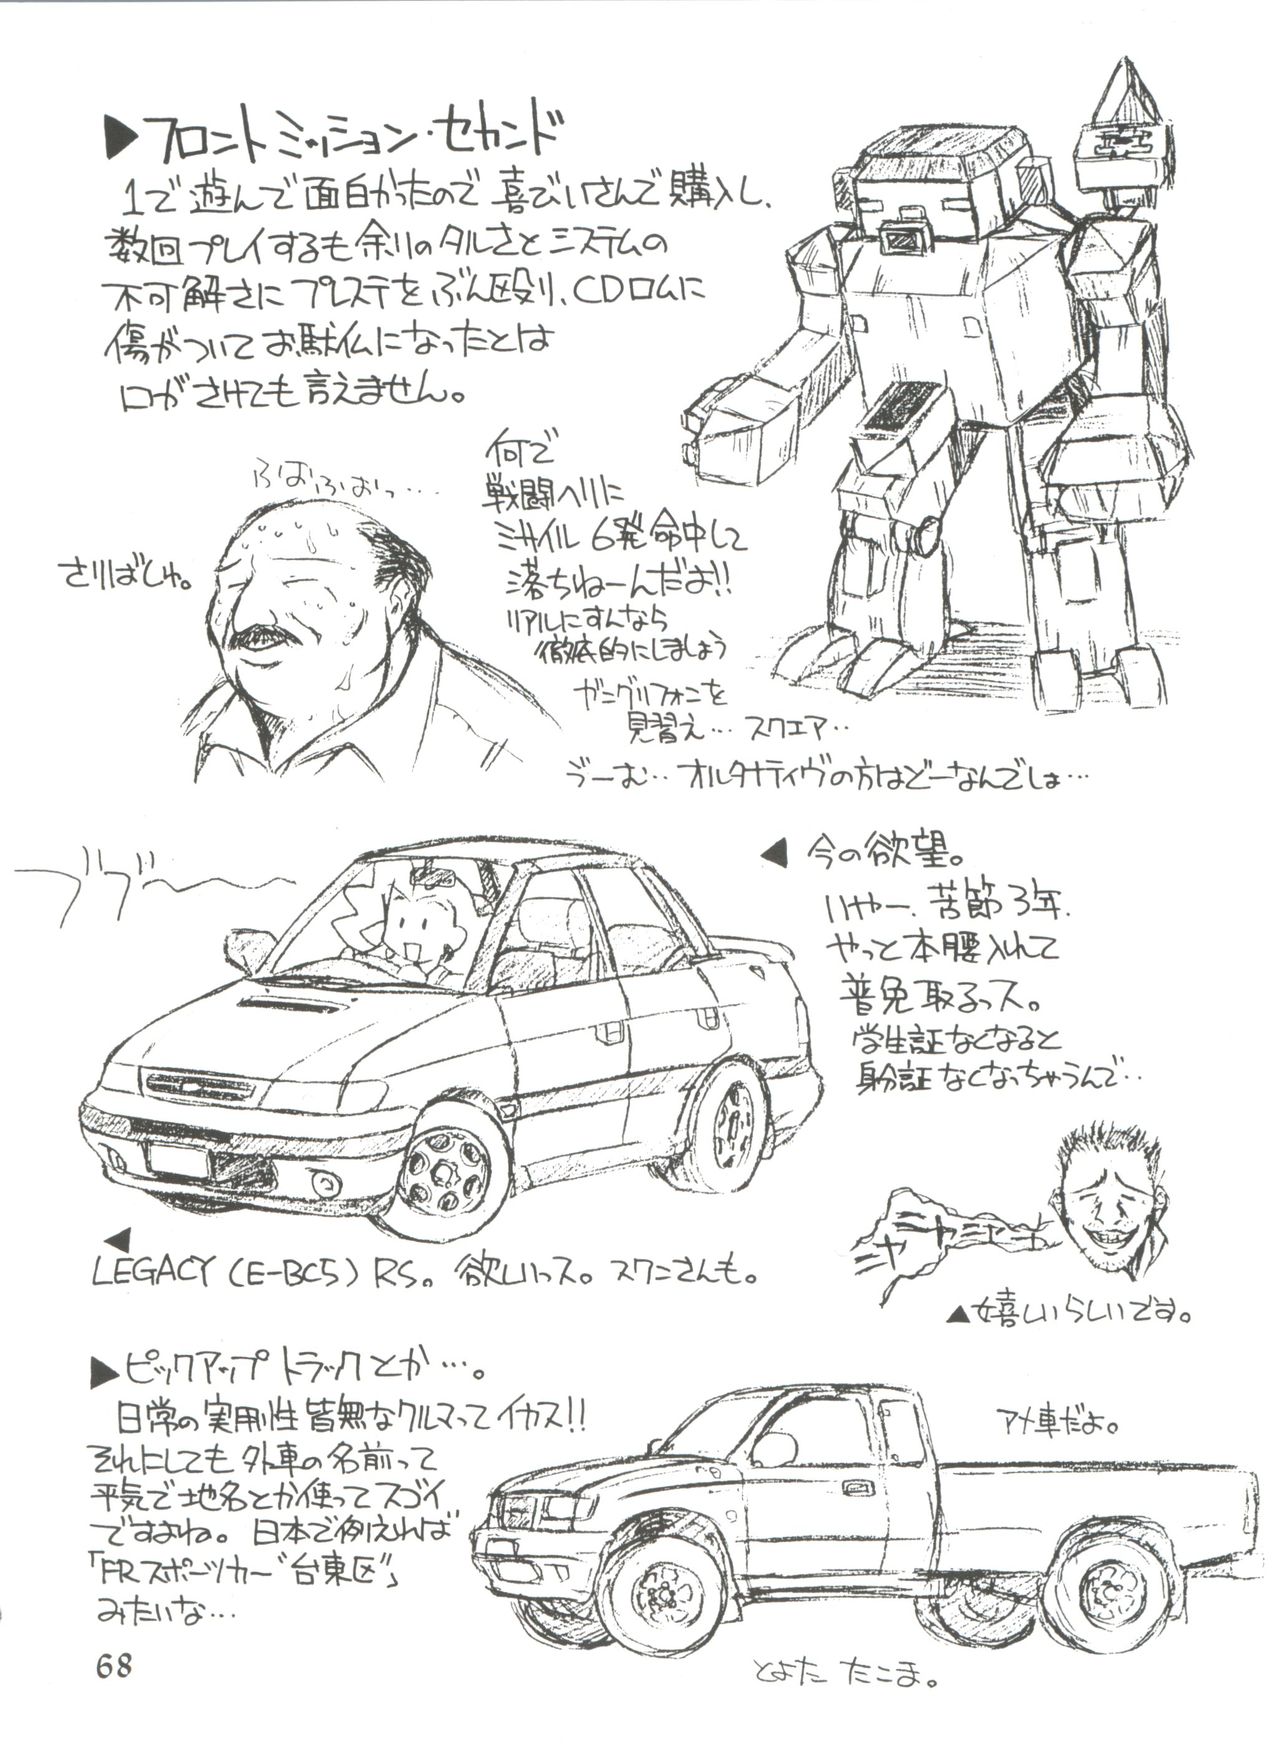 ▶フロントミッション・セカンド
1で遊んで面白かったので喜びいさんで購入し、
数回プレイするも余りのタルさとシステムの
不可解さにプレステをぶん殴り、CDロムに
傷がついてお駄仏になったとは
口がさけても言えません。
ふおふおっ…
さりばしゅ。
何で
戦闘ヘリに
ミサイル6発命中して
落ちねーんだよ!!
リアルにすんなら
徹底的にしましょう
ガングリフォンを
見習え…スクエア‥
ゔーむ‥オルタナティヴの方はどーなんでしょ…
ブブー
◀今の欲望。
いやー、苦節3年、
やっと本腰入れて
普免取るっス。
学生証なくなると
身分証なくなっちゃうんで‥
ニヤニヤ
▲嬉しいらしいです。
◀
LEGACY(E-BC5)RS。欲しいっス。スワニさんも。
▶ピックアップトラックとか…。
日常の実用性皆無なクルマってイカス!!
それにしても外車の名前って
平気で地名とか使ってスゴイ
ですよね。日本で例えれば
「FRスポーツカー"台東区"」
みたいな…
アメ車だよ。
とよた たこま。
68